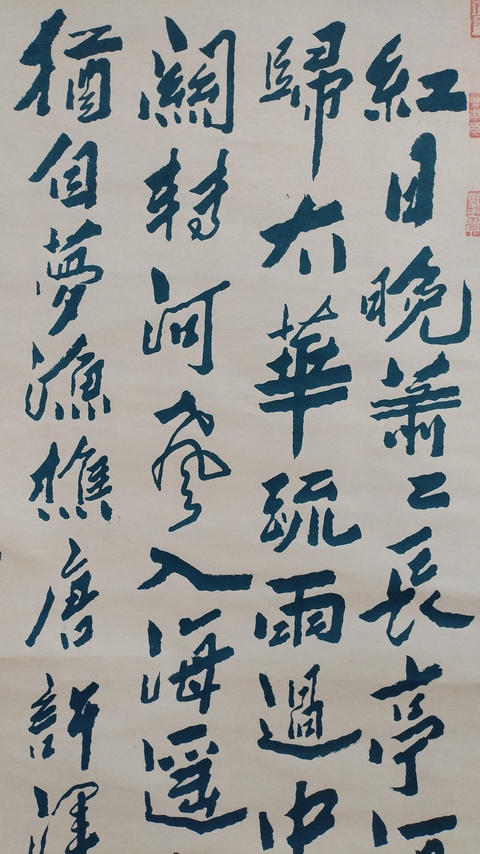 紅日晚蕭二長亭
歸太華疏雨過中
關轉河入海遥
猶自夢漁樵唐許渾